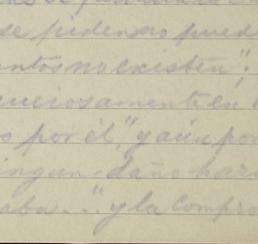 se piden no pued
ntos no existen";
enciosamente en
s por él", y aún por
ningun daño har
aba..." y la compro